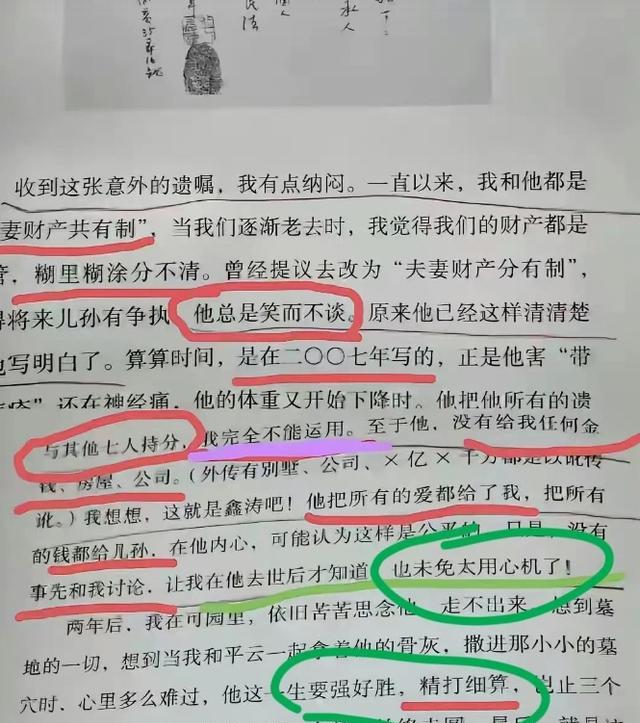 私人
民法
收到这张意外的遗嘱，我有点纳闷。一直以来，我和他都是
妻财产共有制”，当我们逐渐老去时，我觉得我们的财产都是
管，糊里糊涂分不清。曾经提议去改为“夫妻财产分有制”，
得将来儿孙有争执，他总是笑而不谈。原来他已经这样清清楚
也写明白了。算算时间，是在二〇〇七年写的，正是他害“带
还在神经痛，他的体重又开始下降时。他把他所有的遗
与其他七人持分，我完全不能运用。至于他，没有给我任何金
钱、房屋、公司。（外传有别墅、公司、×亿×千万都是以讹传
讹。）我想想，这就是鑫涛吧！他把所有的爱都给了我，把所有
的钱都给儿孙，在他内心，可能认为这样是公平的，只是，没有
事先和我讨论，让我在他去世后才知道，也未免太用心机了！
两年后，我在可园里，依旧苦苦思念他，走不出来，想到墓
地的一切，想到当我和平云一起拿着他的骨灰，撒进那小小的墓
穴时，心里多么难过，他这一生要强好胜，精打细算，岂止三个